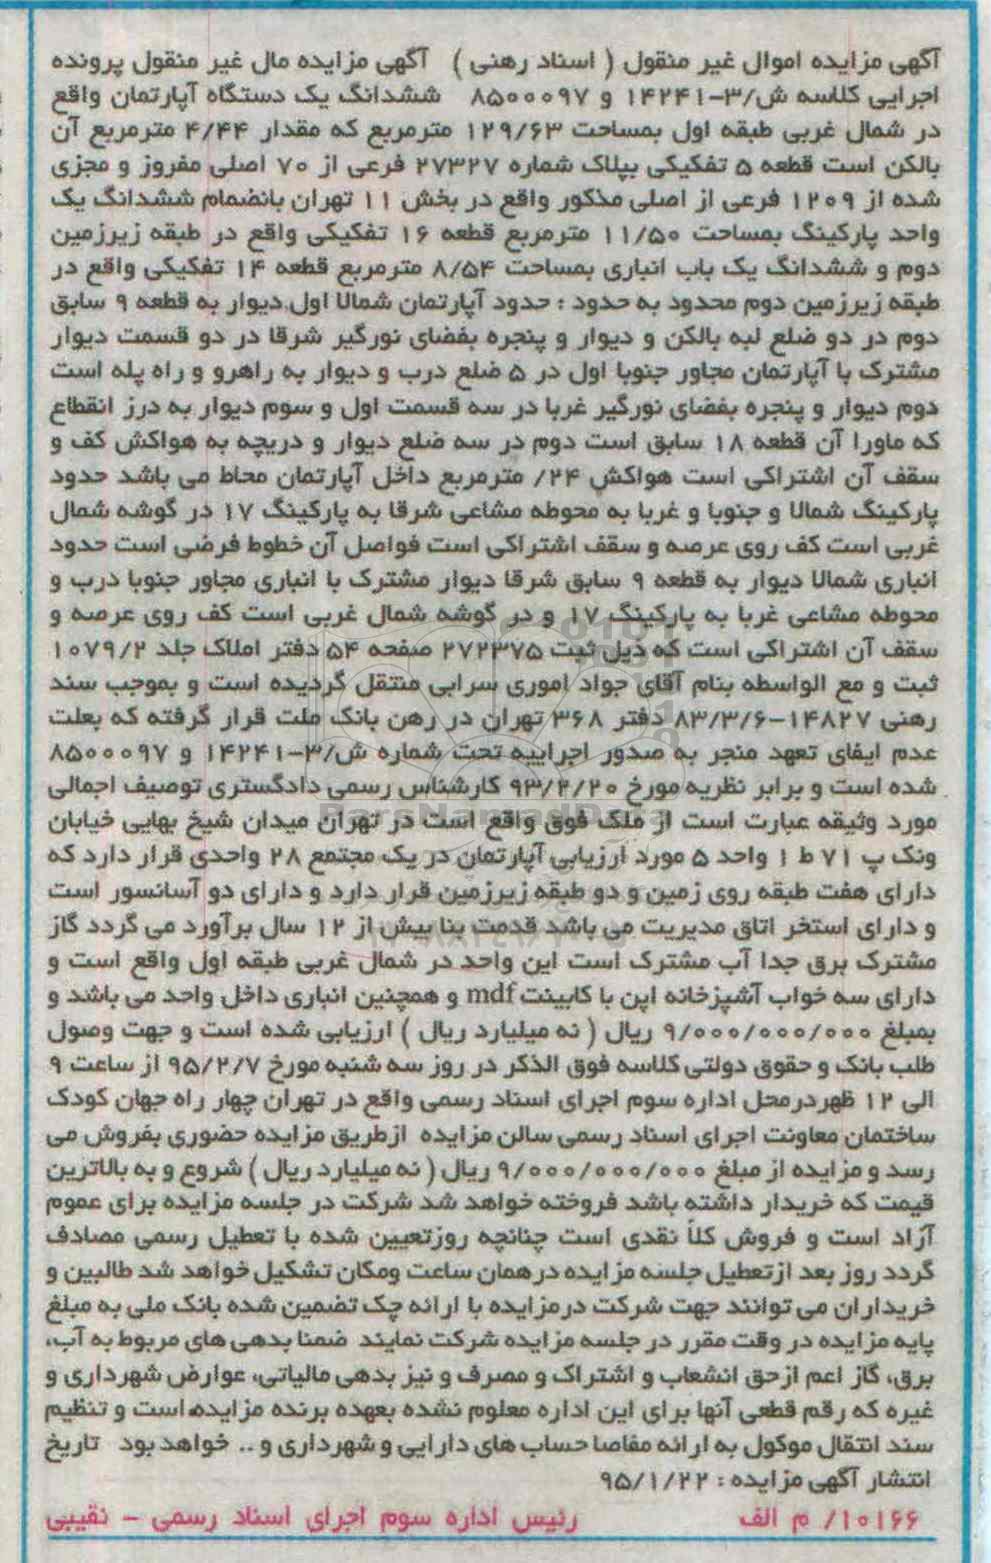 آگهی مزایده اموال غیر منقول ( اسناد رهنی ) آگهی مزایده مال غیر منقول پرونده
اجرایی کلاسه ش/۳-۱۴۲۴۱ و ۸۵۰۰۰۹۷ ششدانگ یک دستگاه آپارتمان واقع
در شمال غربی طبقه اول بمساحت ۱۲۹/۶۳ مترمربع که مقدار ۴/۴۴ مترمربع آن
بالکن است قطعه ۵ تفکیکی بپلاک شماره ۲۷۳۲۷ فرعی از ۷۰ اصلی مفروز و مجزی
شده از ۱۲۰۹ فرعی از اصلی مذکور واقع در بخش ۱۱ تهران بانضمام ششدانگ یک
واحد پارکینگ بمساحت ۱۱/۵۰ مترمربع قطعه ۱۶ تفکیکی واقع در طبقه زیرزمین
دوم و ششدانگ یک باب انباری بمساحت ۸/۵۴ مترمربع قطعه ۱۴ تفکیکی واقع در
طبقه زیرزمین دوم محدود به حدود : حدود آپارتمان شمالا اول دیوار به قطعه ۹ سابق
دوم در دو ضلع لبه بالکن و دیوار و پنجره بفضای نورگیر شرقا در دو قسمت دیوار
مشترک با آپارتمان مجاور جنوبا اول در ۵ ضلع درب و دیوار به راهرو و راه پله است
دوم دیوار و پنجره بفضای نورگیر غربا در سه قسمت اول و سوم دیوار به درز انقطاع
که ماورا آن قطعه ۱۸ سابق است دوم در سه ضلع دیوار و دریچه به هواکش کف و
سقف آن اشتراکی است هواکش ۲۴/ مترمربع داخل آپارتمان محاط می باشد حدود
پارکینگ شمالا و جنوبا و غربا به محوطه مشاعی شرقا به پارکینگ ۱۷ در گوشه شمال
غربی است کف روی عرصه و سقف اشتراکی است فواصل آن خطوط فرضی است حدود
انباری شمالا دیوار به قطعه ۹ سابق شرقا دیوار مشترک با انباری مجاور جنوبا درب و
محوطه مشاعی غربا به پارکینگ ۱۷ و در گوشه شمال غربی است کف روی عرصه و
سقف آن اشتراکی است که ذیل ثبت ۲۷۲۳۷۵ صفحه ۵۴ دفتر املاک جلد ۱۰۷۹/۲
ثبت و مع الواسطه بنام آقای جواد اموری سرابی منتقل گردیده است و بموجب سند
رهنی ۱۴۸۲۷-۸۳/۳/۶ دفتر ۳۶۸ تهران در رهن بانک ملت قرار گرفته که بعلت
عدم ایفای تعهد منجر به صدور اجراییه تحت شماره ش/۳-۱۴۲۴۱ و ۸۵۰۰۰۹۷
شده است و برابر نظریه مورخ ۹۳/۲/۲۰ کارشناس رسمی دادگستری توصیف اجمالی
مورد وثیقه عبارت است از ملک فوق واقع است در تهران میدان شیخ بهایی خیابان
ونک پ ۷۱ ط ۱ واحد ۵ مورد ارزیابی آپارتمان در یک مجتمع ۲۸ واحدی قرار دارد که
دارای هفت طبقه روی زمین و دو طبقه زیرزمین قرار دارد و دارای دو آسانسور است
و دارای استخر اتاق مدیریت می باشد قدمت بنا بیش از ۱۲ سال برآورد می گردد گاز
مشترک برق جدا آب مشترک است این واحد در شمال غربی طبقه اول واقع است و
دارای سه خواب آشپزخانه اپن با کابینت mdf و همچنین انباری داخل واحد می باشد و
بمبلغ ۹/۰۰۰/۰۰۰/۰۰۰ ریال ( نه میلیارد ریال ) ارزیابی شده است و جهت وصول
طلب بانک و حقوق دولتی کلاسه فوق الذکر در روز سه شنبه مورخ ۹۵/۲/۷ از ساعت ۹
الی ۱۲ ظهردرمحل اداره سوم اجرای اسناد رسمی واقع در تهران چهار راه جهان کودک
ساختمان معاونت اجرای اسناد رسمی سالن مزایده ازطریق مزایده حضوری بفروش می
رسد و مزایده از مبلغ ۹/۰۰۰/۰۰۰/۰۰۰ ریال ( نه میلیارد ریال ) شروع و به بالاترین
قیمت که خریدار داشته باشد فروخته خواهد شد شرکت در جلسه مزایده برای عموم
آزاد است و فروش کلاً نقدی است چنانچه روزتعیین شده با تعطیل رسمی مصادف
گردد روز بعد ازتعطیل جلسه مزایده در همان ساعت ومکان تشکیل خواهد شد طالبین و
خریداران می توانند جهت شرکت درمزایده با ارائه چک تضمین شده بانک ملی به مبلغ
پایه مزایده در وقت مقرر در جلسه مزایده شرکت نمایند ضمنا بدهی های مربوط به آب،
برق، گاز اعم ازحق انشعاب و اشتراک و مصرف و نیز بدهی مالیاتی، عوارض شهرداری و
غیره که رقم قطعی آنها برای این اداره معلوم نشده بعهده برنده مزایده است و تنظیم
سند انتقال موکول به ارائه مفاصا حساب های دارایی و شهرداری و .. خواهد بود تاریخ
انتشار آگهی مزایده : ۹۵/۱/۲۲
۱۰۱۶۶/ م الف رئیس اداره سوم اجرای اسناد رسمی - نقیبی